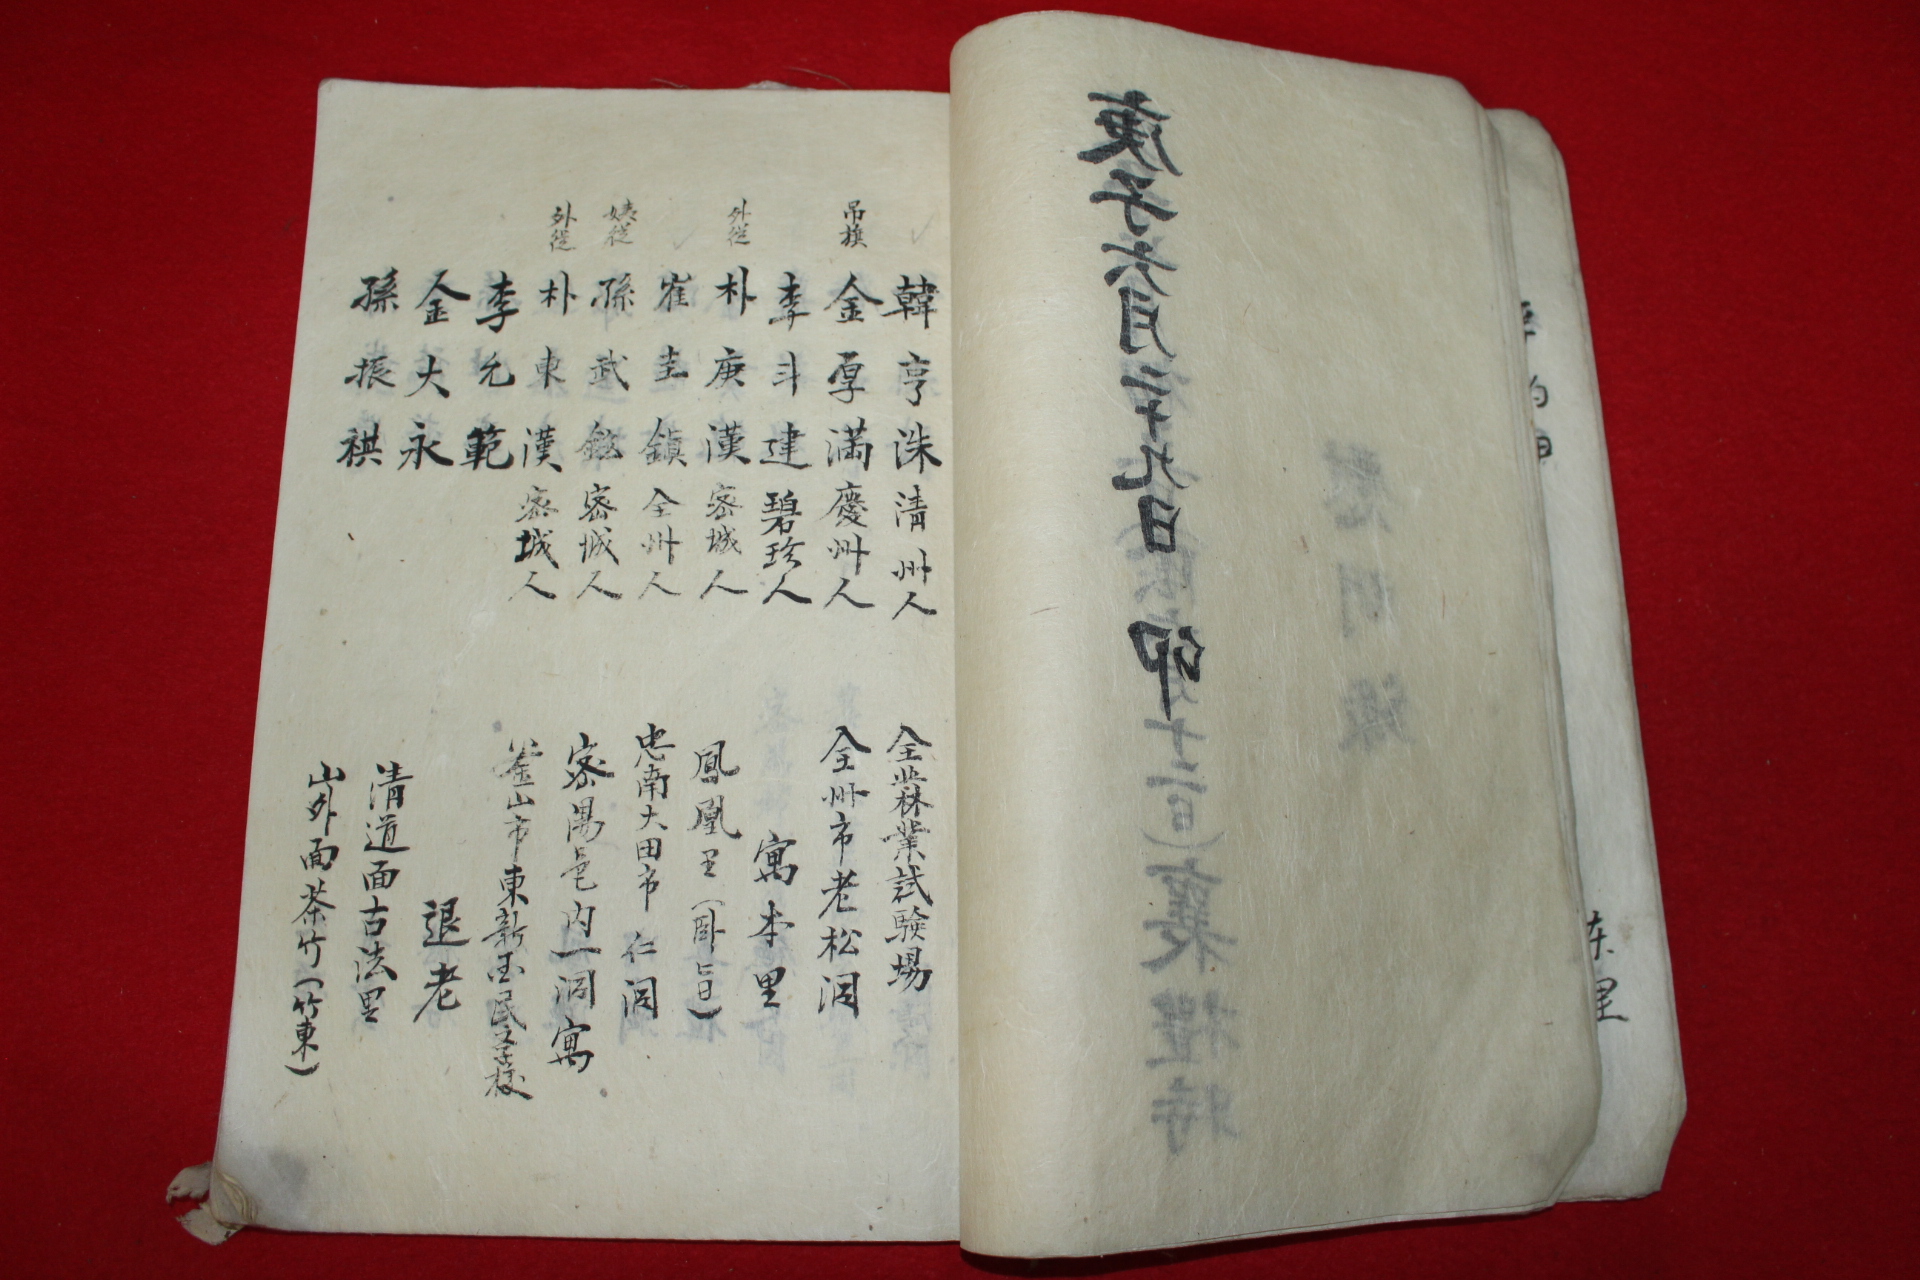 庚子六月二十九日 卯
十二日)襄禮時
慰問錄
韓亨洙 清州人 全北林業試驗場
吊旗 金厚満 慶州人 全州市老松洞
李斗建 碧珍人 寓本里
外從 朴庚漢 密城人 鳳凰里(臥旨)
崔圭鎮 全州人 忠南大田市 仁洞
姨從 孫武鉉 密城人 密陽邑内一洞寓
外從 朴東漢 密城人 釜山市東新國民學校
李允範 退老
金大永 清道面古法里
孫振祺 山外面茶竹(竹東)